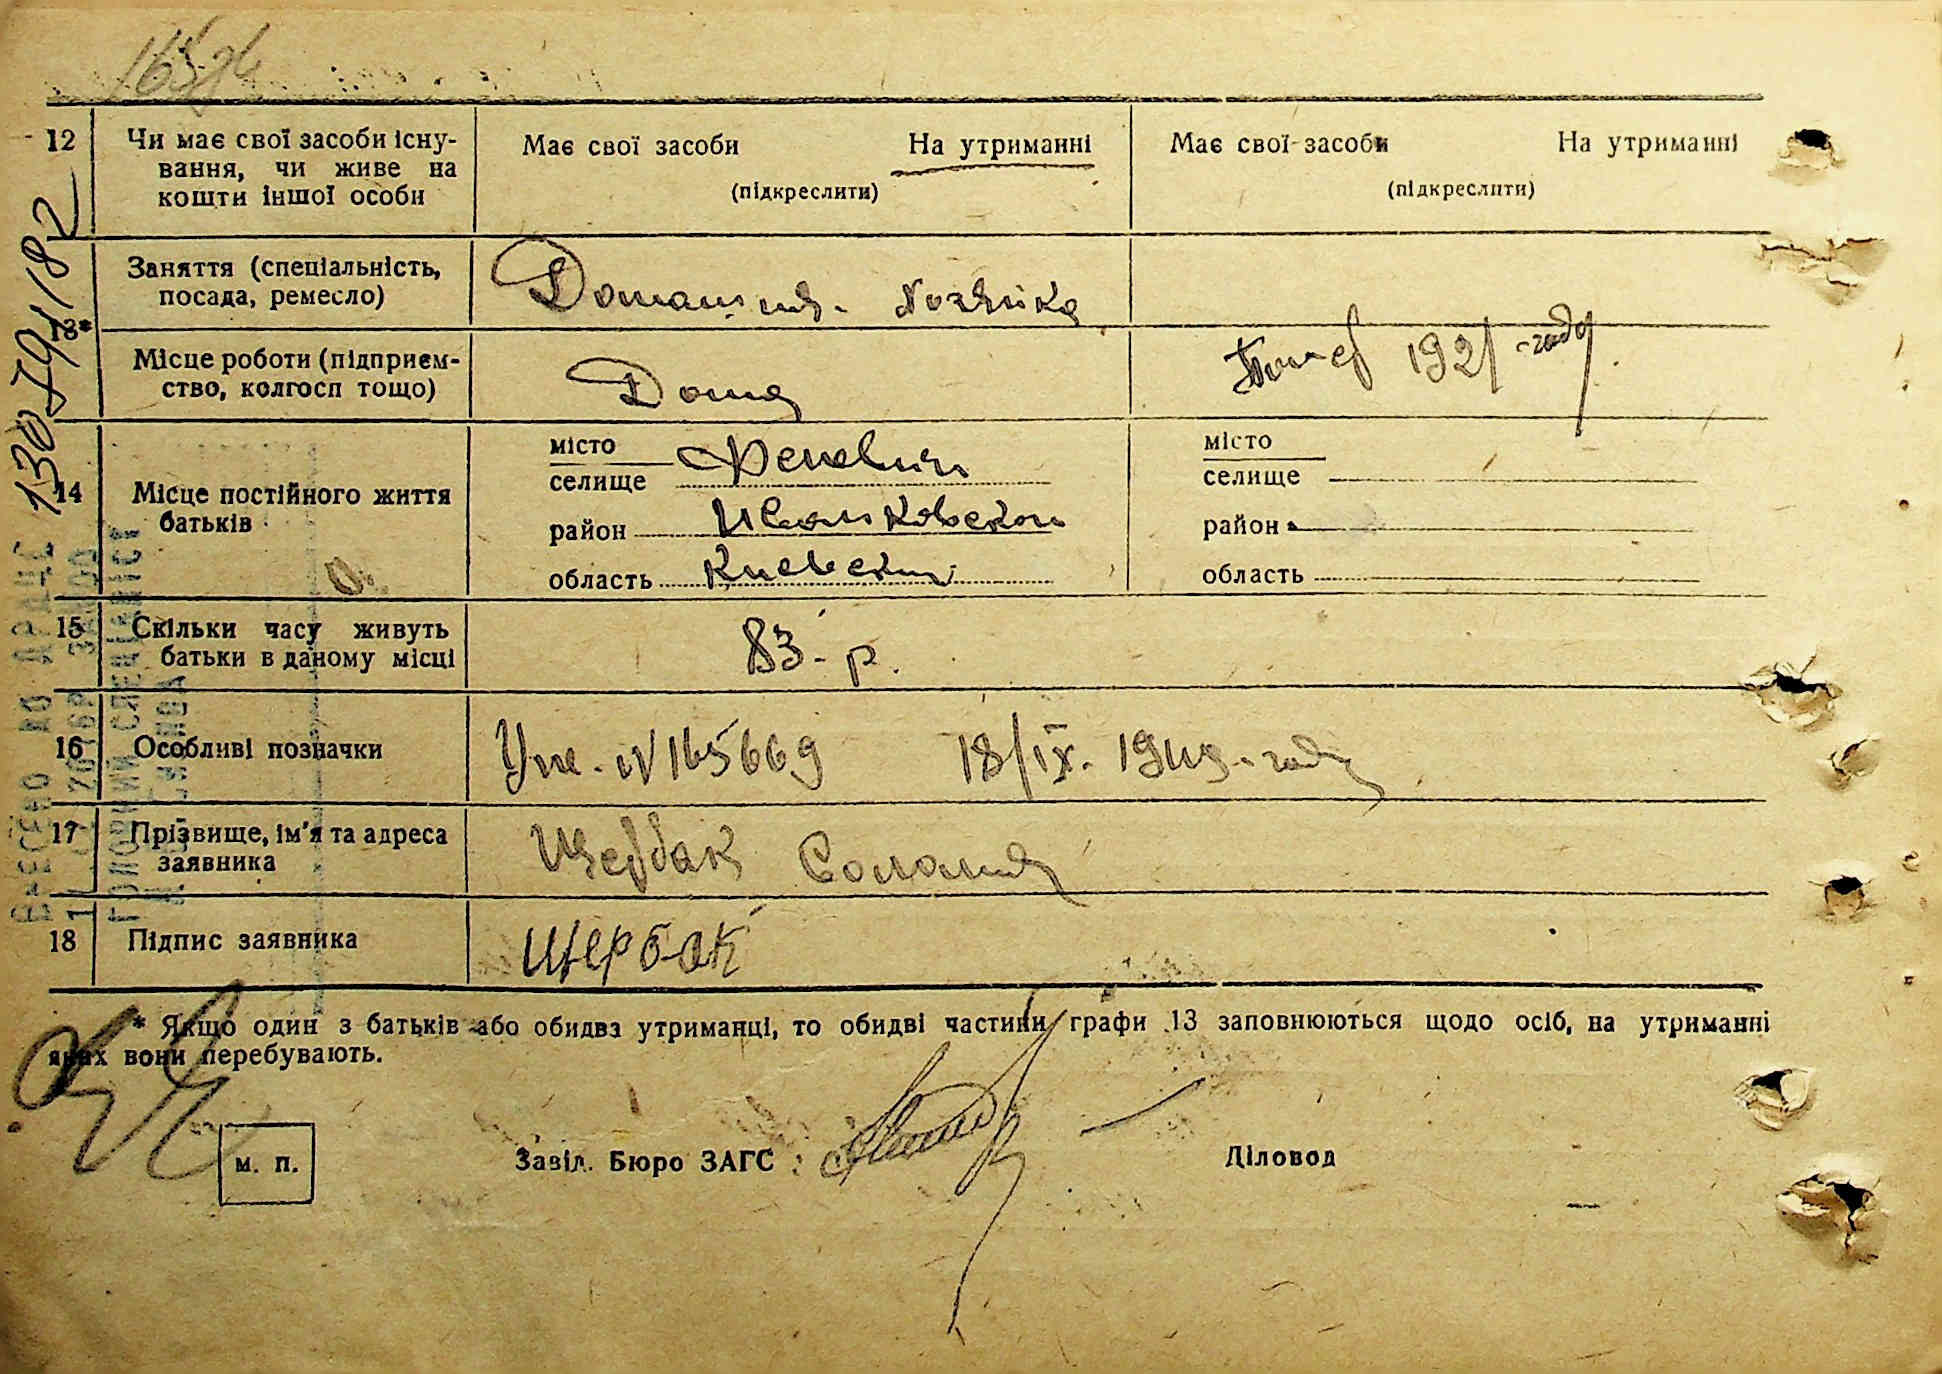 12 Чи має свої засоби існу-
вання, чи живе на
кошти іншої особи
Має свої засоби На утриманні
(підкреслити)
Має свої засоби На утриманні
(підкреслити)
130791/82
13*
Заняття (спеціальність,
посада, ремесло)
Домашня Хозяйка
Місце роботи (підприєм-
ство, колгосп тощо)
Дома
1921 году
14 Місце постійного життя
батьків
місто
селище
район
область Киевский
місто
селище
район
область
15 Скільки часу живуть
батьки в даному місці
83-р.
16 Особливі позначки
N 165669 18/IX. 1945-года
17 Прізвище, ім'я та адреса
заявника
Щербак Соломия
18 Підпис заявника
Щербак
ВНЕСЕНО ДО ДРАЦС
ГОЛОВНИЙ СПЕЦІАЛІСТ
* Якщо один з батьків або обидва утриманці, то обидві частини графи 13 заповнюються щодо осіб, на утриманні
яких вони перебувають.
м. п.
Завід. Бюро ЗАГС
Діловод